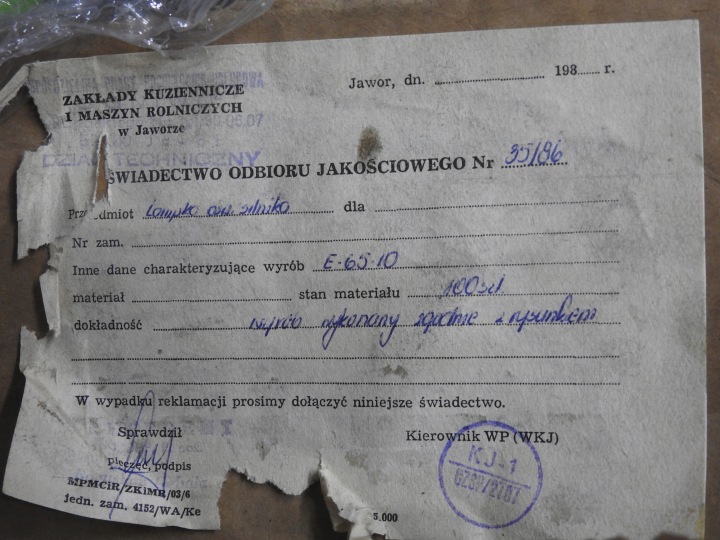 Jawor, dn. 198 r.
ZAKŁADY KUZIENNICZE
I MASZYN ROLNICZYCH
w Jaworze
DZIAŁ TECHNICZNY
ŚWIADECTWO ODBIORU JAKOŚCIOWEGO Nr 35/86
Prz dmiot dla
Nr zam.
Inne dane charakteryzujące wyrób E-65-10
materiał stan materiału 100
dokładność wyrób wykonany zgodnie z rysunkiem
W wypadku reklamacji prosimy dołączyć niniejsze świadectwo.
Sprawdził Kierownik WP (WKJ)
Pieczęć, podpis
KJ-1
MPMCiR/ZKiMR/03/6
jedn. zam. 4152/WA/Ke
5.000